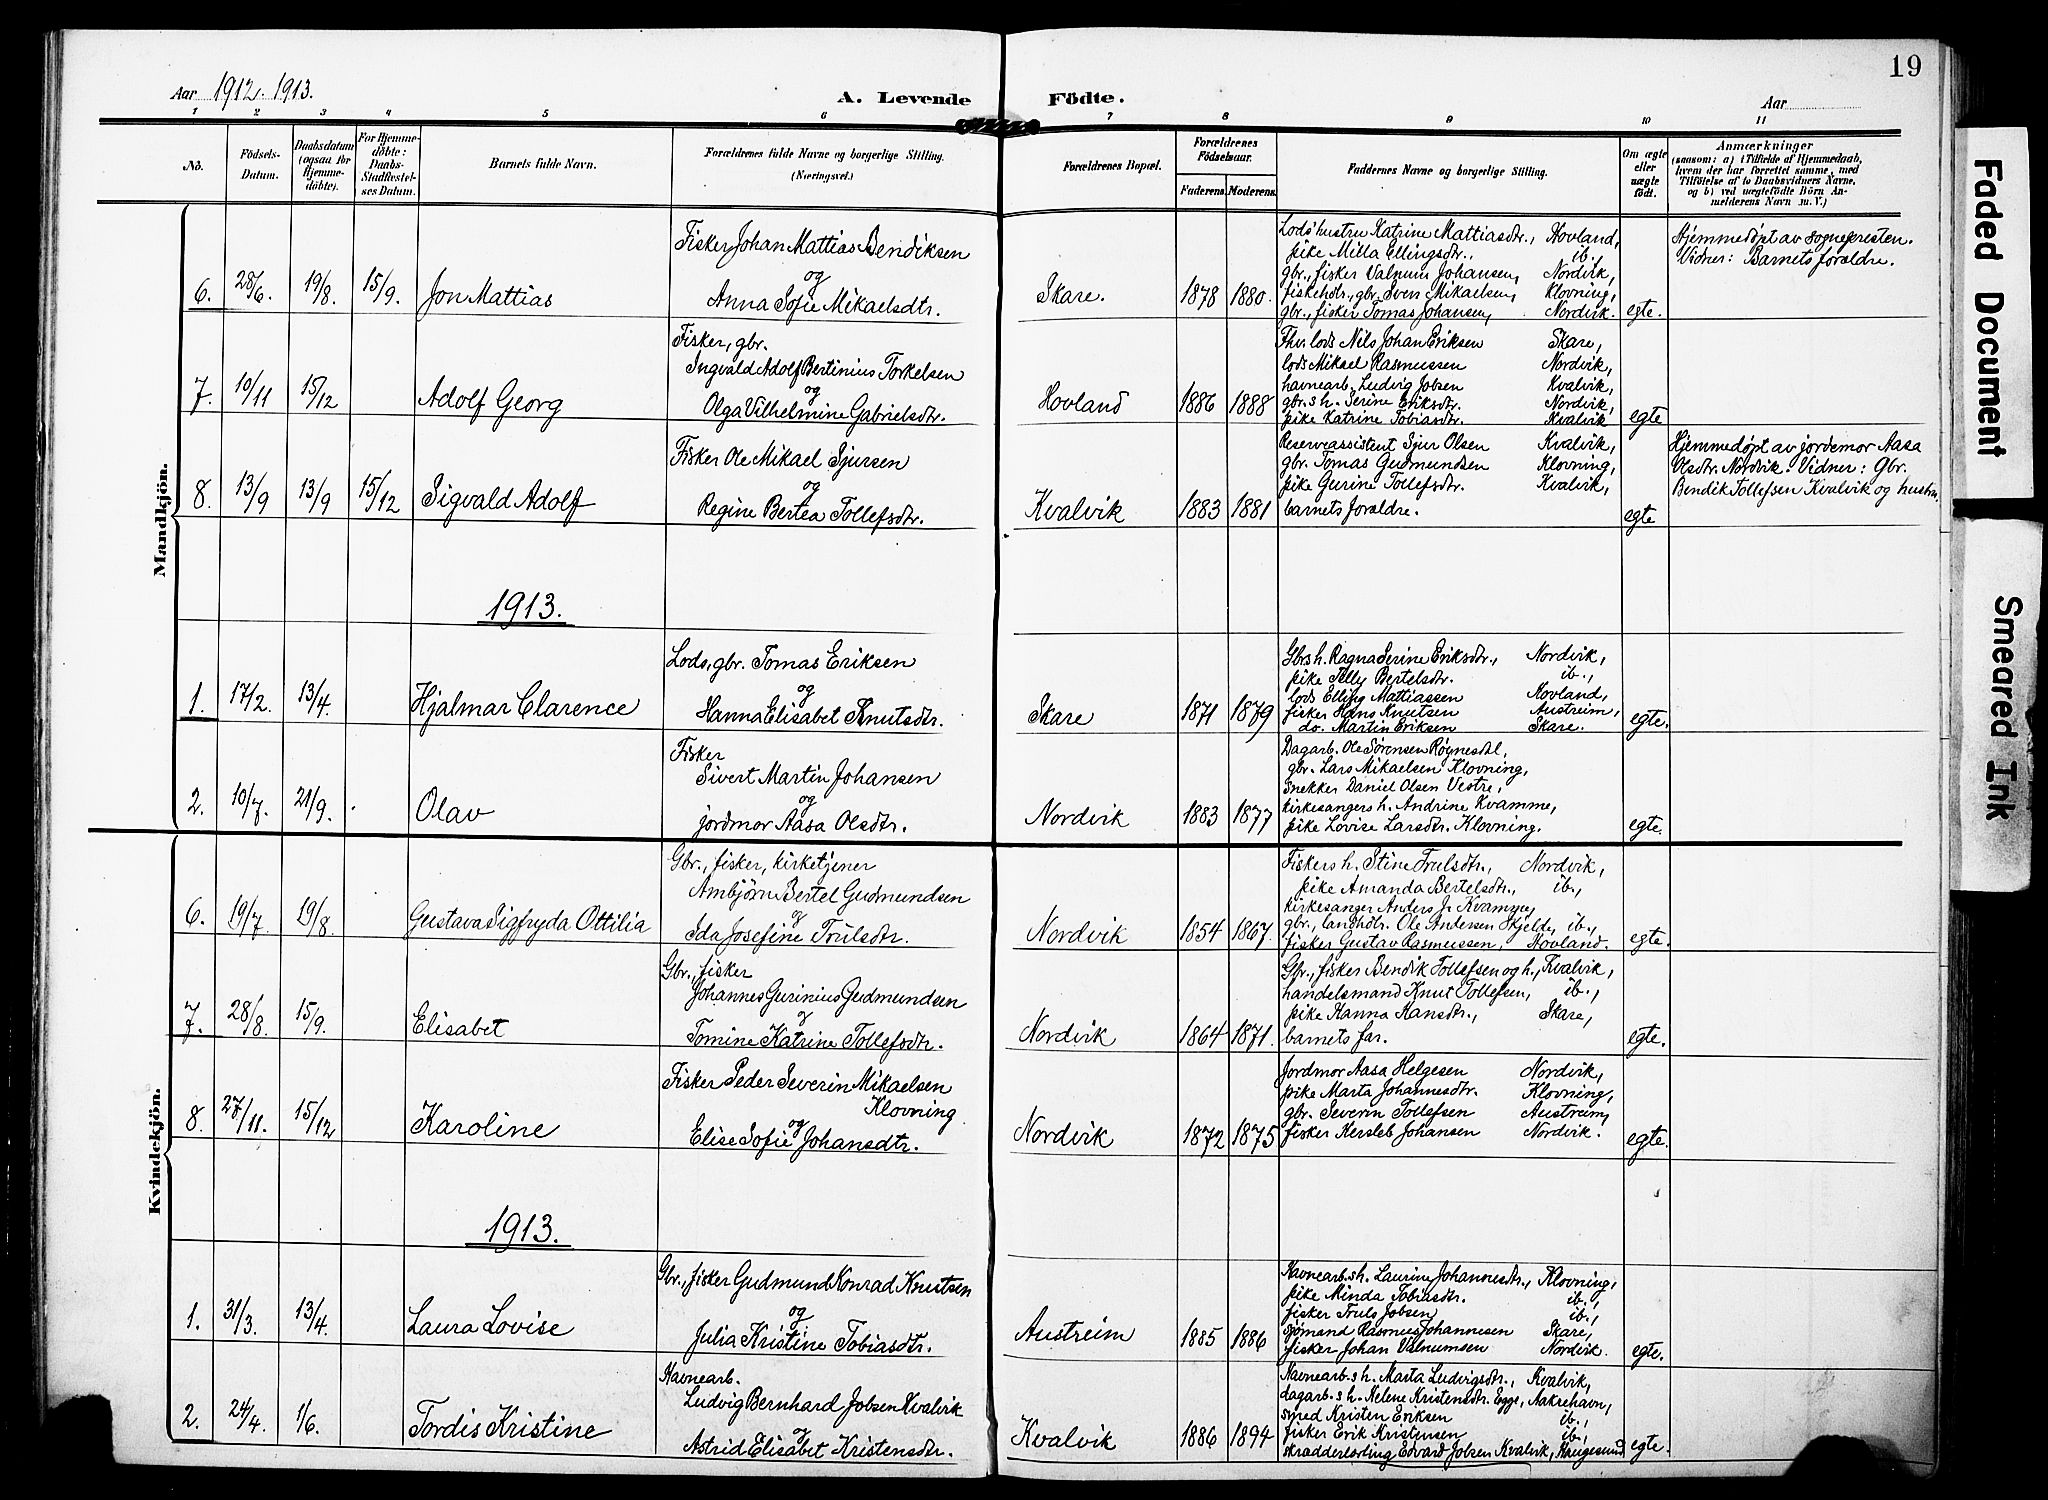 19
Aar 1912. 1913.
A. Levende Födte.
Aar
1 2 3 4 5 6 7 8 9 10 11
No.
Födsels-Datum.
Daabsdatum (ogsaa for Hjemmedöbte).
For Hjemmedöbte: Daabs-Stadfæstelses Datum.
Barnets fulde Navn.
Forældrenes fulde Navne og borgerlige Stilling. (Næringsvei.)
Forældrenes Bopæl.
Forældrenes Födselsaar.
Faderens. Moderens.
Faddernes Navne og borgerlige Stilling.
Om ægte eller uægte födt.
Anmærkninger
(saasom: a) i Tilfælde af Hjemmedaab, hvem der har forrettet samme, med Tilföielse af to Daabsvidners Navne, og b) ved uægtefödte Börn Anmelderens Navn m. V.)
Mandkjön.
6. 28/6. 19/8. 15/9. Jon Mattias
Fisker Johan Mattias Bendiksen
og
Anna Sofie Mikaelsdtr.
Skare. 1878 1880.
Lods' hustru Katrine Mattiasdtr., Hovland,
pike Milla Ellingsdtr., ib.,
gbr., fisker Valnum Johansen, Nordvik,
fiskehdlr., gbr. Sven Mikaelsen, Klovning,
gbr., fisker Tomas Johansen, Nordvik.
egte.
Hjemmedøpt av sognepresten.
Vidner: Barnets forældre.
7. 10/11 15/12 Adolf Georg
Fisker, gbr.
Ingvald Adolf Bertinius Torkelsen
og
Olga Vilhelmine Gabrielsdtr.
Hovland 1886 1888
Fhv. lods Nils Johan Eriksen Skare,
lods Mikael Rasmussen Nordvik,
havnearb. Ludvig Jobsen Kvalvik,
gbr.s h. Serine Eriksdtr. Nordvik,
pike Katrine Tobiasdtr. Kvalvik
egte
8. 13/9 13/9 15/12 Sigvald Adolf
Fisker Ole Mikael Sjursen
og
Regine Bertea Tollefsdtr.
Kvalvik 1883 1881
Reserveassistent Sjur Olsen Kvalvik,
gbr. Tomas Gudmundsen Klovning,
pike Gurine Tollefsdtr. Kvalvik,
barnets forældre.
egte
Hjemmedøpt av jordemor Aasa
Olsdtr. Nordvik. Vidner: Gbr.
Bendik Tollefsen Kvalvik og hustru.
1913.
1. 17/2. 13/4. Hjalmar Clarence
Lods, gbr. Tomas Eriksen
og
Hanna Elisabet Knutsdtr.
Skare 1871 1879
Gbrs h. Ragna Serine Eriksdtr., Nordvik,
pike Tilly Bertelsdtr. ib.,
lods Elling Mattiassen Hovland,
fisker Hans Knutsen Austreim,
do. Martin Eriksen Skare.
egte.
2. 10/7. 21/9. Olav
Fisker
Sivert Martin Johansen
og
jordmor Aasa Olsdtr.
Nordvik 1883 1877
Dagarb. Ole Sørensen Røgnesdal,
gbr. Lars Mikaelsen Klovning,
snekker Daniel Olsen Vestre,
kirkesangers h. Andrine Kvamme,
pike Lovise Larsdtr. Klovning.
egte.
Kvindekjön.
6. 19/7. 19/8. Gustava Sigfryda Ottilia
Gbr., fisker, kirketjener
Ambjørn Bertel Gudmundsen
og
Ida Josefine Trulsdtr.
Nordvik 1854 1867.
Fiskers h. Stine Trulsdtr., Nordvik,
pike Amanda Bertelsdtr., ib.,
kirkesanger Anders J. Kvamme,
gbr., landhdlr. Ole Andersen Skjelde, ib.,
fisker Gustav Rasmussen, Hovland.
egte.
7. 28/8. 15/9. Elisabet
Gbr., fisker
Johannes Gurinius Gudmundsen
og
Tomine Katrine Tollefsdtr.
Nordvik 1864 1871.
Gbr., fisker Bendik Tollefsen og h., Kvalvik,
handelsmand Knut Tollefsen, ib.,
pike Hanna Hansdtr., Skare,
barnets far.
egte.
8. 27/11. 15/12 Karoline
Fisker Peder Severin Mikaelsen
Klovning
og
Elise Sofie Johansdtr.
Nordvik 1872 1875
Jordmor Aasa Helgesen Nordvik,
pike Marta Johannesdtr. Klovning,
gbr. Severin Tollefsen Austreim,
fisker Kersleb Johansen Nordvik.
egte.
1913.
1. 31/3. 13/4. Laura Lovise
Gbr., fisker Gudmund Konrad Knutsen
og
Julia Kristine Tobiasdtr.
Austreim 1885 1886
Havnearb.s h. Laurine Johannesdtr., Klovning,
pike Minda Tobiasdtr. ib.,
fisker Truls Jobsen ib.,
sjømand Rasmus Johannesen Skare,
fisker Johan Valnumsen Nordvik.
egte.
2. 24/4. 1/6. Tordis Kristine
Havnearb.
Ludvig Bernhard Jobsen Kvalvik
og
Astrid Elisabet Kristensdtr.
Kvalvik 1886 1894
Havnearb.s h. Marta Ludvigsdtr., Kvalvik,
dagarb.s h. Helene Kristensdtr. Egge, Aakrehavn,
smed Kristen Eriksen ib.,
fisker Erik Kristensen ib.,
skrædderlærling Edvard Jobsen Kvalvik, Haugesund
egte.
Faded Document
Smeared Ink